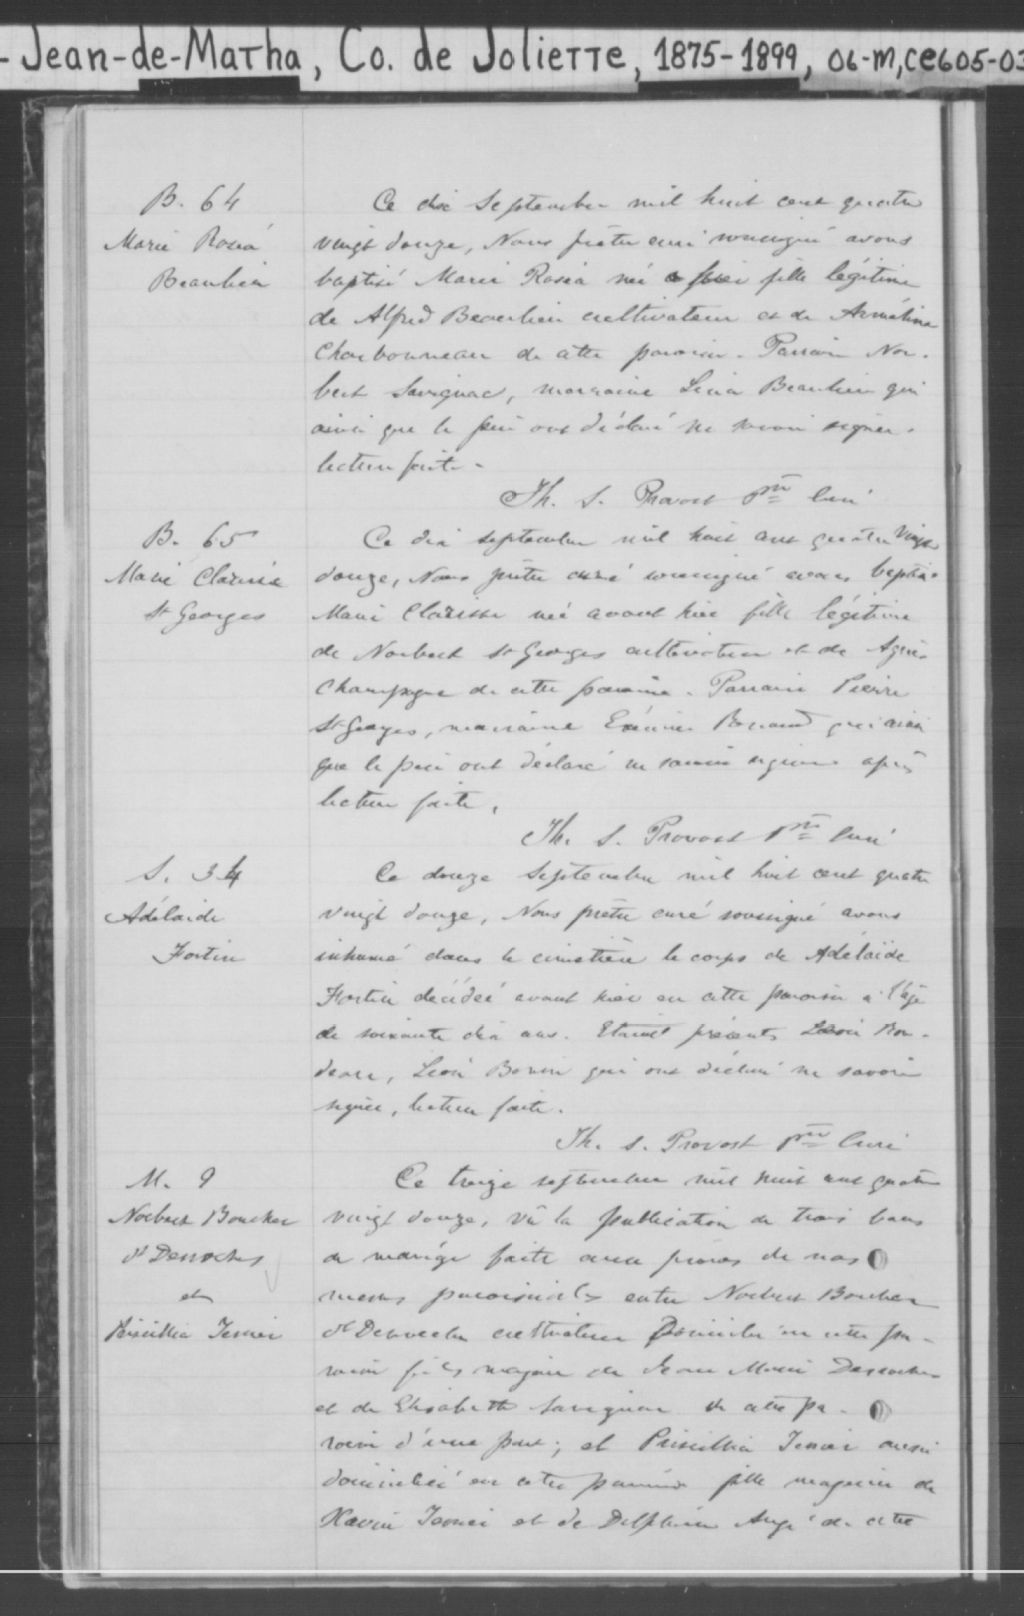 -Jean-de-Matha, Co. de Joliette, 1875-1899, 06-M,CE605-03
B. 64
Marie Roséa
Beaulieu
Ce dix Septembre mil huit cent quatre
vingt douze, Nous prêtre curé soussigné avons
baptisé Marie Roséa née hier fille légitime
de Alfred Beaulieu cultivateur et de Armélina
Charbonneau de cette paroisse. Parrain Nor-
bert Savignac, marraine Beaulieu qui
ainsi que le père ont déclaré ne savoir signer.
lecture faite.
Th. S. Provost Ptre Curé
B. 65
Marie Clarisse
St Georges
Ce dix septembre mil huit cent quatre vingt
douze, Nous prêtre curé soussigné avons baptisé
Marie Clarisse née avant hier fille légitime
de Norbert St Georges cultivateur et de
Champagne de cette paroisse. Parrain Pierre
St Georges, marraine qui ainsi
que le père ont déclaré ne savoir signer après
lecture faite.
Th. S. Provost Ptre Curé
S. 34
Adélaide
Fortin
Ce douze Septembre mil huit cent quatre
vingt douze, Nous prêtre curé soussigné avons
inhumé dans le cimetière le corps de Adélaïde
Fortin décédée avant hier en cette paroisse à l'âge
de soixante dix ans. Etaient présents Ron-
deau, Léon Bonin qui ont déclaré ne savoir
signer, lecture faite.
Th. S. Provost ptre Curé
M. 9
Norbert Boucher
dt Desroches
et
Priscillia Tessier
Ce treize septembre mil huit cent quatre
vingt douze, vû la publication de trois bans
de mariage faite aux prônes de nos
messes paroissiales entre Norbert Boucher
dt Desroches cultivateur domicilié en cette pa-
roisse fils majeur de Jean Marie Desroches
et de Elisabeth Savignac de cette pa-
roisse d'une part; et Priscillia Tessier aussi
domiciliée en cette paroisse fille majeure de
Xavier Tessier et de Delphine Augé de cette